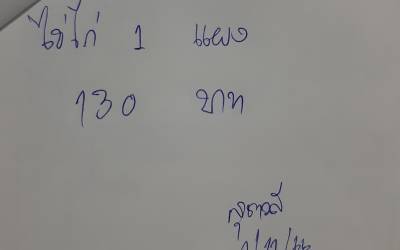 ไข่ไก่ 1 แผง
130 บาท